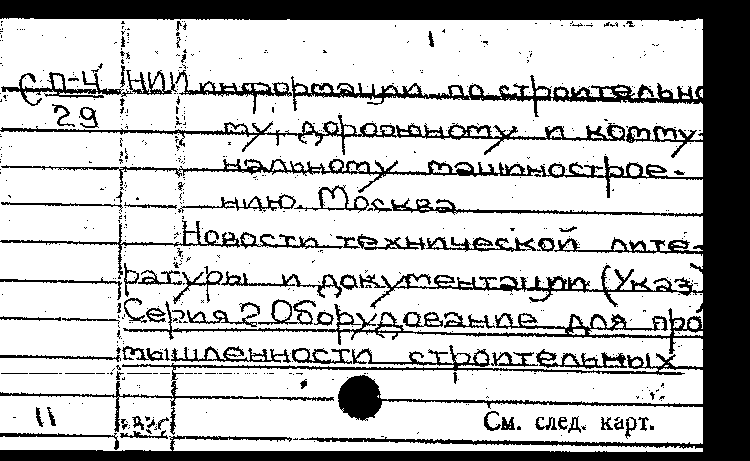 1
С П-4 НИИ информации по строительно
29 му, дорожному и комму-
нальному машинострое-
нию. Москва
Новости технической лите-
ратуры и документации (Указ)
Серия 2 Оборудование для про
мышленности строительных
11 См. след. карт.